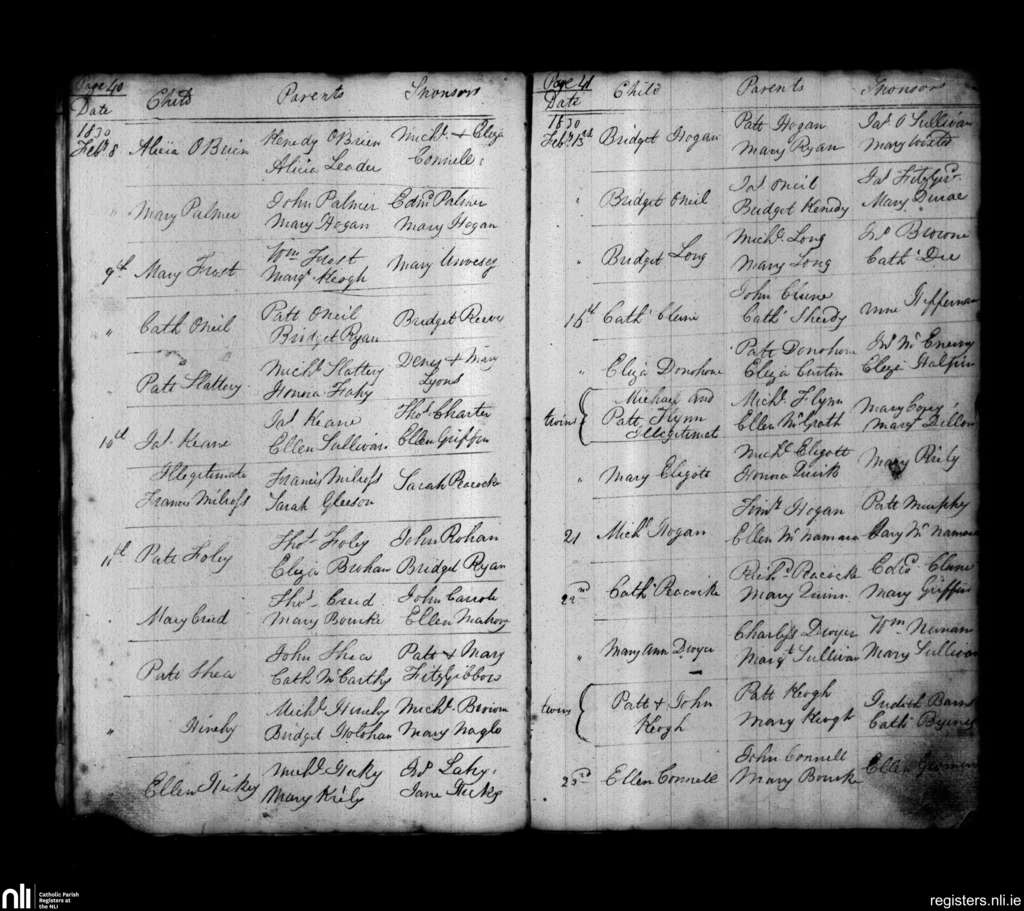 Page 40
Date Child Parents Sponsors
1830
Feby 8 Alicia OBrien Kenedy OBrien Michl + Eliza
Alicia Leader Connell
" Mary Palmer John Palmer Edmd Palmer
Mary Hogan Mary Hogan
9th Mary Frost Wm Frost Mary
Margt Keogh
" Cath Oneil Patt Oneil Bridget
Bridget Ryan
" Patt Slattery Michl Slattery Deniss + Mary
Honora Fahy Lyons
10th Jas Keane Jas Keane Thos Charter
Ellen Sullivan Ellen Griffin
Illegitimate Francis Milross Sarah Peacocke
Francis Milross Sarah Gleeson
11th Patt Foley Thos Foley John Rohan
Eliza Brohan Bridget Ryan
Mary Creed Thos Creed John Carroll
Mary Bourke Ellen Mahony
Patt Shea John Shea Patt + Mary
Cath McCarthy Fitzgibbon
" Hinchy Michl Hinchy Michl Brown
Bridget Holohan Mary Nagle
Ellen Hickey Michl Hicky Jno Lahy
Mary Kiely Jane Hicky
Page 41
Date Child Parents Sponsors
1830
Feby 13th Bridget Hogan Patt Hogan Jas O Sullivan
Mary Ryan Mary
" Bridget Oneil Jas Oneil Jas Fitzger
Bridget Kenedy Mary
" Bridget Long Michl Long Jno Browne
Mary Long Cath Dee
16th Cath Clune John Clune Heffernan
Cath Sheedy
" Eliza Donohoe Patt Donohoe Jno McEnery
Eliza Curtin Eliza Halpin
twins Michael and Michl Flynn Mary
Patt Flynn Ellen McGrath Mary Dillon
Illegitimet
" Mary Eligott Michl Eligott Mary Kiely
Honora Quirk
21 Michl Hogan Timt Hogan Patt Murphy
Ellen McNamara Mary McNamara
22nd Cath Peacocke Richd Peacocke Clune
Mary Quinn Mary Griffin
" Mary Ann Dwyer Charly's Dwyer Wm Nunan
Margt Sullivan Mary Sullivan
twins Patt + John Patt Keogh Judith
Keogh Mary Keogh Cath Byrnes
23rd Ellen Connell John Connell Ellen
Mary Bourke
nli Catholic Parish
Registers at
the NLI
registers.nli.ie